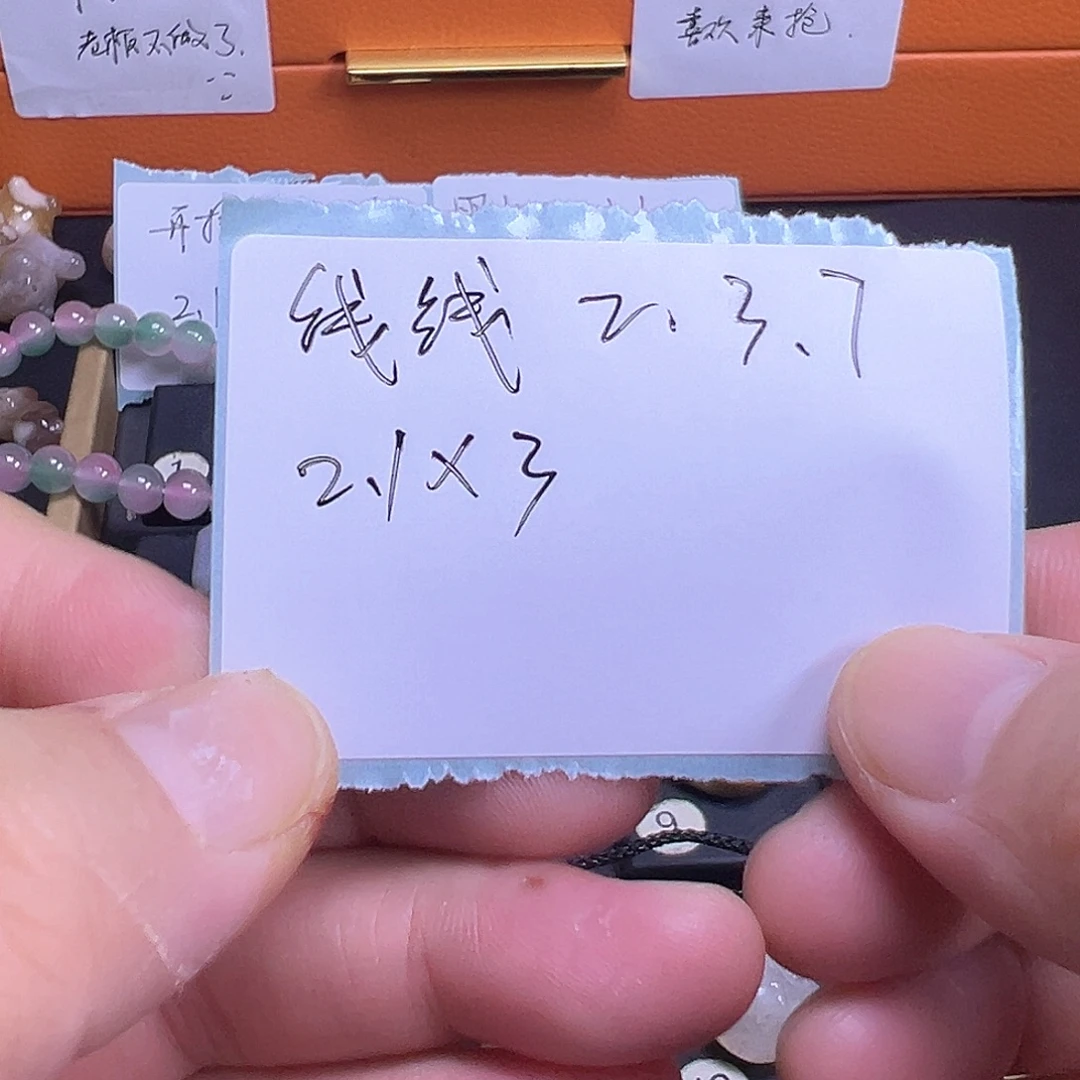 老板不做了.
喜欢来抢.
再
2.1
线线 2、3、7
2.1×3
1
9